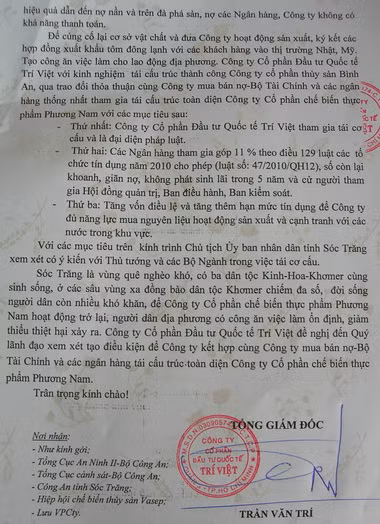 hiệu quả dẫn đến nợ nần và trên đà phá sản, nợ các Ngân hàng, Công ty không có
khả năng thanh toán.
Để củng cố lại cơ sở vật chất và đưa Công ty hoạt động sản xuất, ký kết các
hợp đồng xuất khẩu tôm đông lạnh với các khách hàng vào thị trường Nhật, Mỹ.
Tạo công ăn việc làm cho lao động địa phương. Công ty Cổ Phần Đầu tư Quốc tế
Trí Việt với kinh nghiệm tái cấu trúc thành công Công ty cổ phần thủy sản Bình
An, qua trao đổi thỏa thuận cùng Công ty mua bán nợ-Bộ Tài Chính và các ngân
hàng thống nhất tham gia tái cấu trúc toàn diện Công ty Cổ phần chế biến thực
phẩm Phương Nam với các mục tiêu sau:
- Thứ nhất: Công ty Cổ Phần Đầu tư Quốc tế Trí Việt tham gia tái cơ
cấu và là đại diện pháp luật.
- Thứ hai: Các Ngân hàng tham gia góp 11 % theo điều 129 luật các tổ
chức tín dụng năm 2010 cho phép (luật số: 47/2010/QH12), số còn lại
khoanh, giãn nợ, không phát sinh lãi trong 5 năm và cử người tham
gia Hội đồng quản trị, Ban điều hành, Ban kiểm soát.
- Thứ ba: Tăng vốn điều lệ và tăng thêm hạn mức tín dụng để Công ty
đủ năng lực mua nguyên liệu hoạt động sản xuất và cạnh tranh với các
nước trong khu vực.
Với các mục tiêu trên kính trình Chủ tịch Ủy ban nhân dân tỉnh Sóc Trăng
xem xét có ý kiến với Thủ tướng và các Bộ Ngành trong việc tái cơ cấu.
Sóc Trăng là vùng quê nghèo khó, có ba dân tộc Kinh-Hoa-Khơmer cùng
sinh sống, ở các sâu vùng xa đồng bào dân tộc Khơmer chiếm đa số, đời sống
người dân còn nhiều khó khăn, để Công ty Cổ phần chế biến thực phẩm Phương Nam
hoạt động trở lại, người dân địa phương có công ăn việc làm ổn định, giảm
thiểu thiệt hại xảy ra. Công ty Cổ phần Đầu tư Quốc tế Trí Việt đề nghị đến Quý
lãnh đạo xem xét tạo điều kiện để Công ty kết hợp cùng Công ty mua bán nợ-Bộ
Tài Chính và các ngân hàng tái cấu trúc toàn diện Công ty Cổ phần chế biến thực
phẩm Phương Nam.
Trân trọng kính chào!
TỔNG GIÁM ĐỐC
Nơi nhận:
- Như kính gởi;
- Tổng Cục An Ninh II-Bộ Công An;
- Tổng Cục cảnh sát-Bộ Công An;
- Công an tỉnh Sóc Trăng;
- Hiệp hội chế biến thủy sản Vasep;
- Lưu VPCty.
CÔNG TY
CỔ PHẦN
ĐẦU TƯ QUỐC TẾ
TRÍ VIỆT
TP.HỒ CHÍ MINH
TRẦN VĂN TRÍ